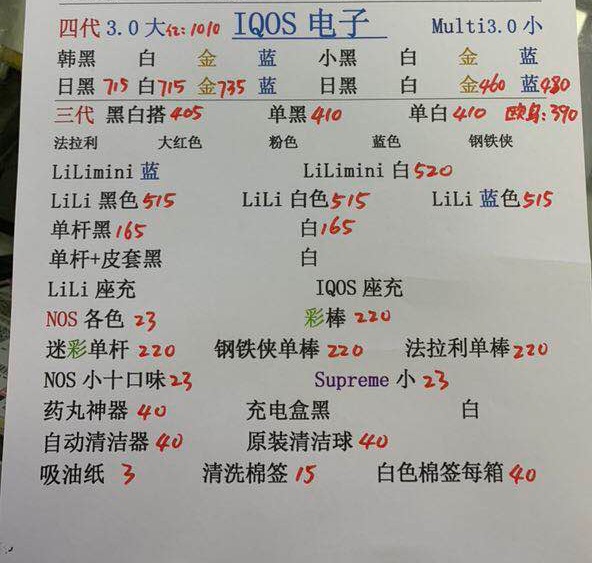 四代 3.0 大红:1010 IQOS 电子 Multi3.0 小
韩黑 白 金 蓝 小黑 白 金 蓝
日黑 715 白 715 金 735 蓝 日黑 白 金 460 蓝 480
三代 黑白搭 405 单黑 410 单白 410 欧乌:390
法拉利 大红色 粉色 蓝色 钢铁侠
LiLimini 蓝 LiLimini 白 520
LiLi 黑色 515 LiLi 白色 515 LiLi 蓝色 515
单杆黑 165 白 165
单杆+皮套黑 白
LiLi 座充 IQOS 座充
NOS 各色 23 彩棒 220
迷彩单杆 220 钢铁侠单棒 220 法拉利单棒 220
NOS 小十口味 23 Supreme 小 23
药丸神器 40 充电盒黑 白
自动清洁器 40 原装清洁球 40
吸油纸 3 清洗棉签 15 白色棉签每箱 40